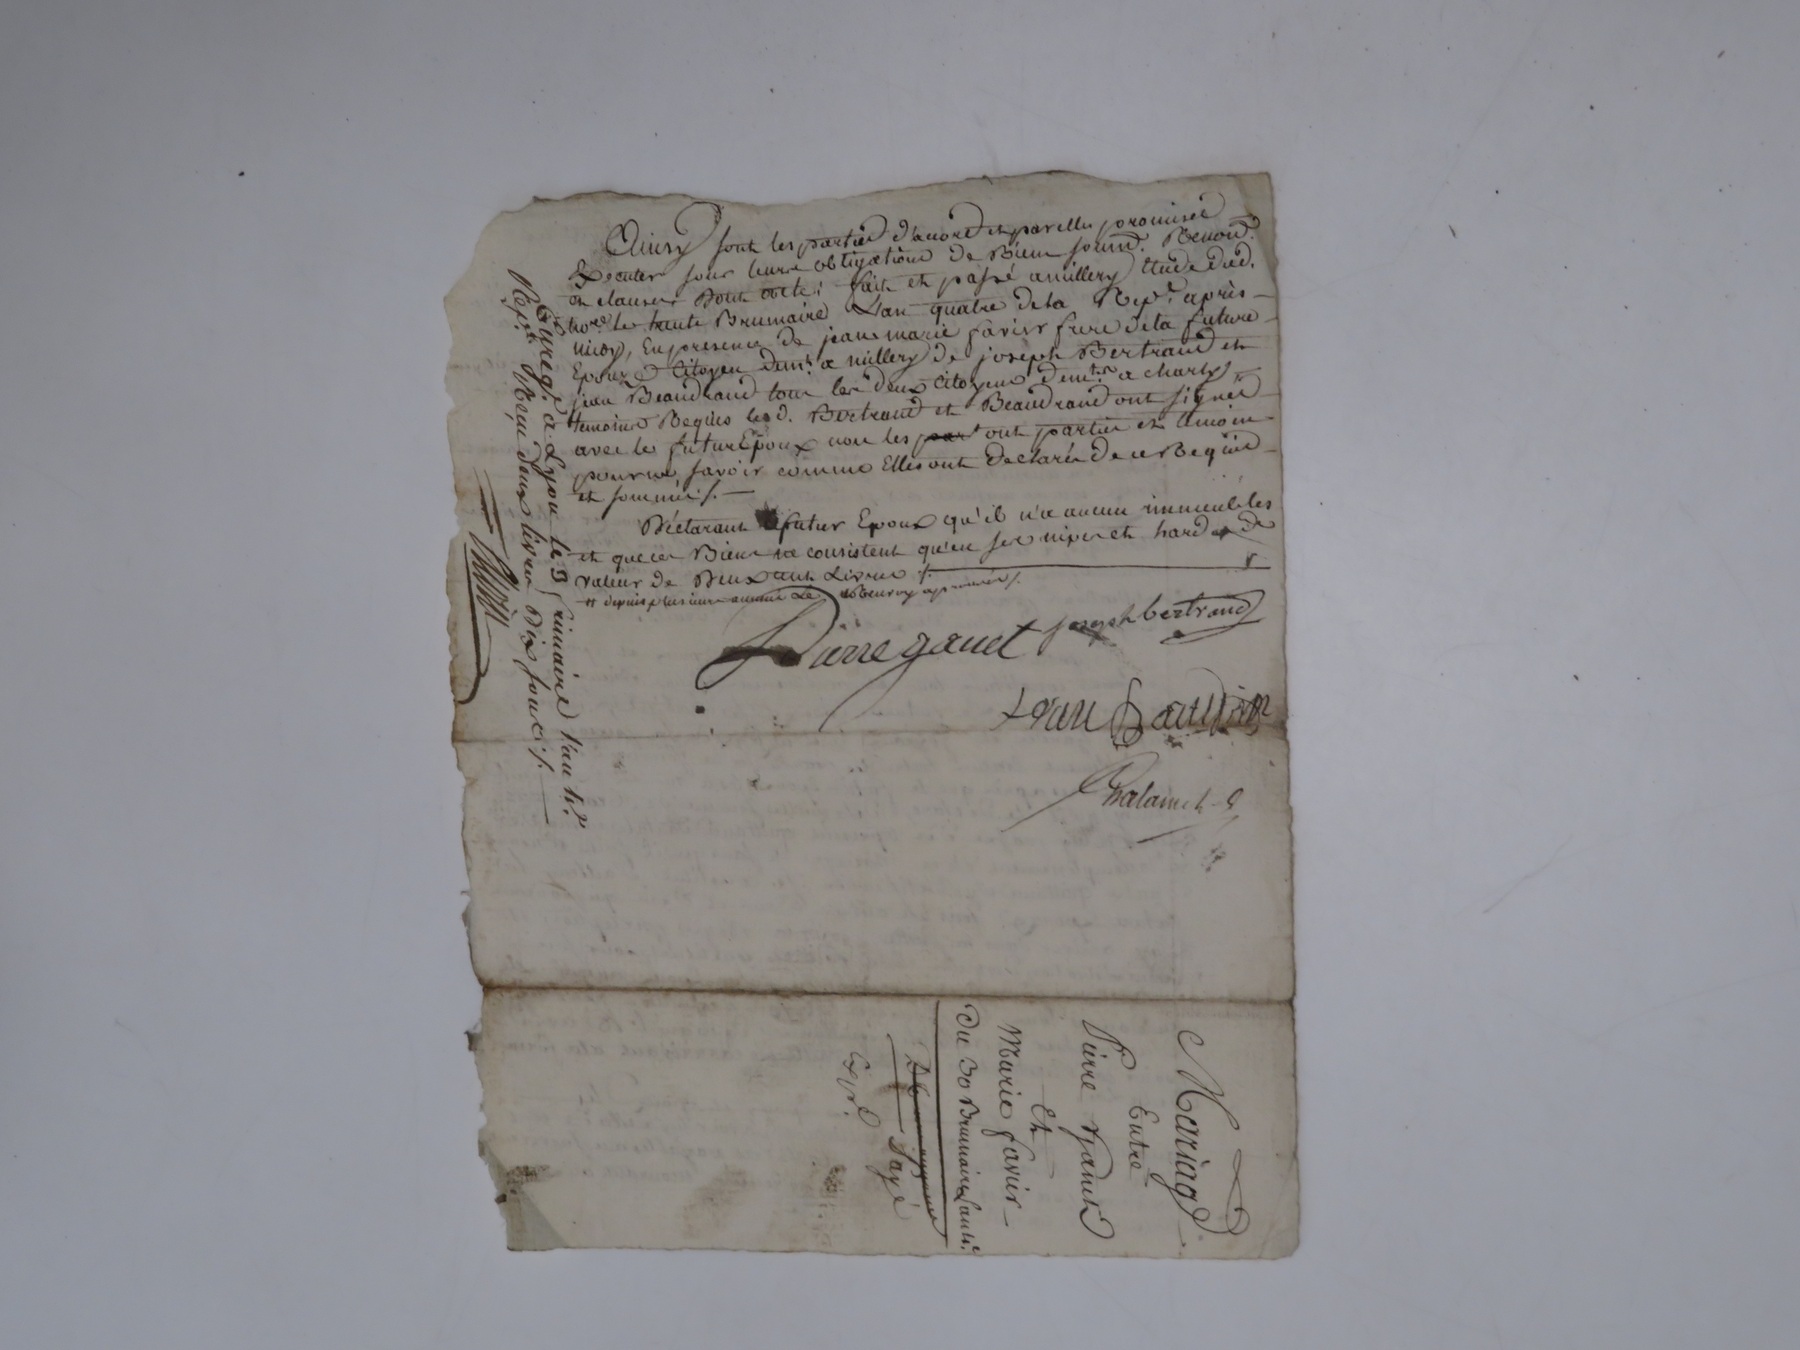 Ainsy sont les parties d'accord et par elles promises
Executer sous leurs obligations de Biens soumd. Renond.
et clauses Dont acte; fait et passé a millery Etude dud.
no.re le trente Brumaire L'an quatre de la Rep.e après
midy, En presence de jean marie favier frere de la future
Epouse Citoyen dem.t a millery de joseph Bertrand et
jean Beaudrand tous les deux Citoyens dem.ts a charly #
temoins Requis les d. Bertrand et Beaudrand ont signés
avec le futur Epoux non les part out parties et temoin
pour ne savoir comme Elles ont declarés de ce Requis
et sommés /.
Déclarant le futur Epoux qu'il n'a aucun immeubles
et que ces Biens ne consistent qu'en ses nipes et hardes de
valeur de Deux cent Livres /.
# depuis plusieurs années Le Renvoy aprouvés /.
Pierre ganet joseph bertrand
Jean Baudran
Chalamel
Enreg. à Lyon le 3 frimaire l'an 4.e
Rep. Reçu deux livres Dix sous /.
Mariage
Entre
Pierre ganet
Et
Marie favier
Du 30 Brumaire L'an 4.e
payé
Exp.d